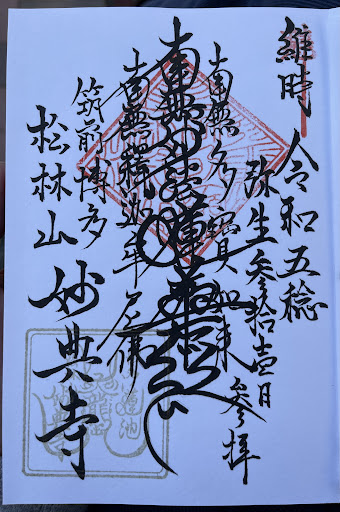 維時 令和五稔
弥生参拾壹日
参拝
南無多寳如来
南無妙法蓮華経
南無釋迦牟尼佛
筑前博多
松林山 妙典寺